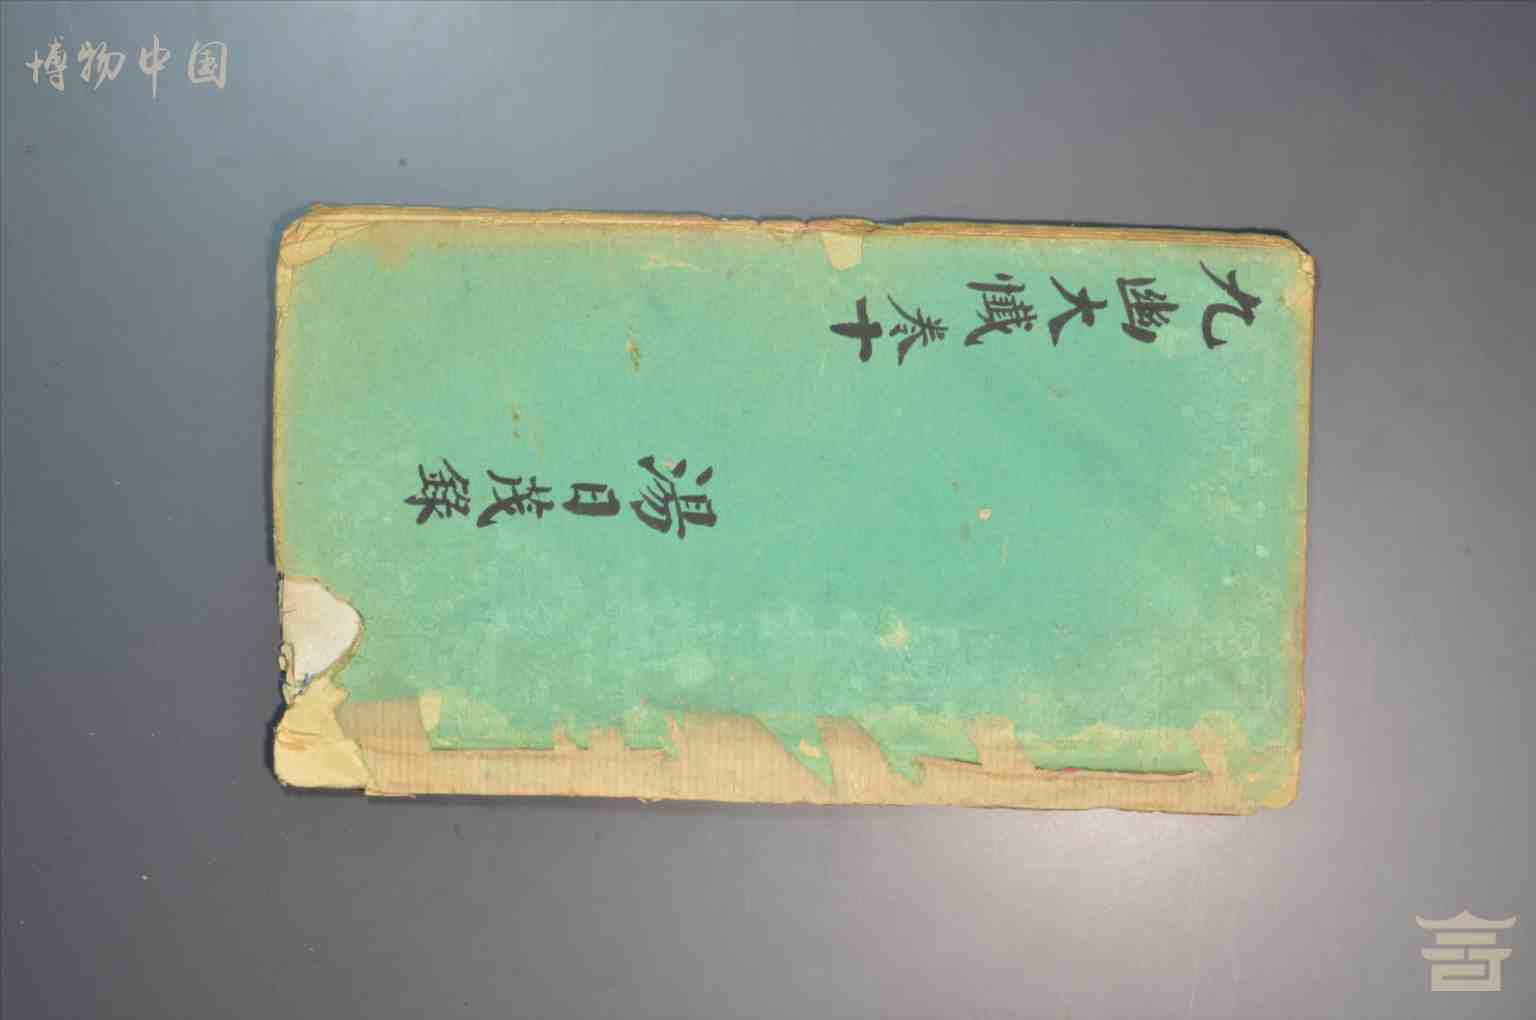 博物中国
九幽大懺卷十
湯日茂録